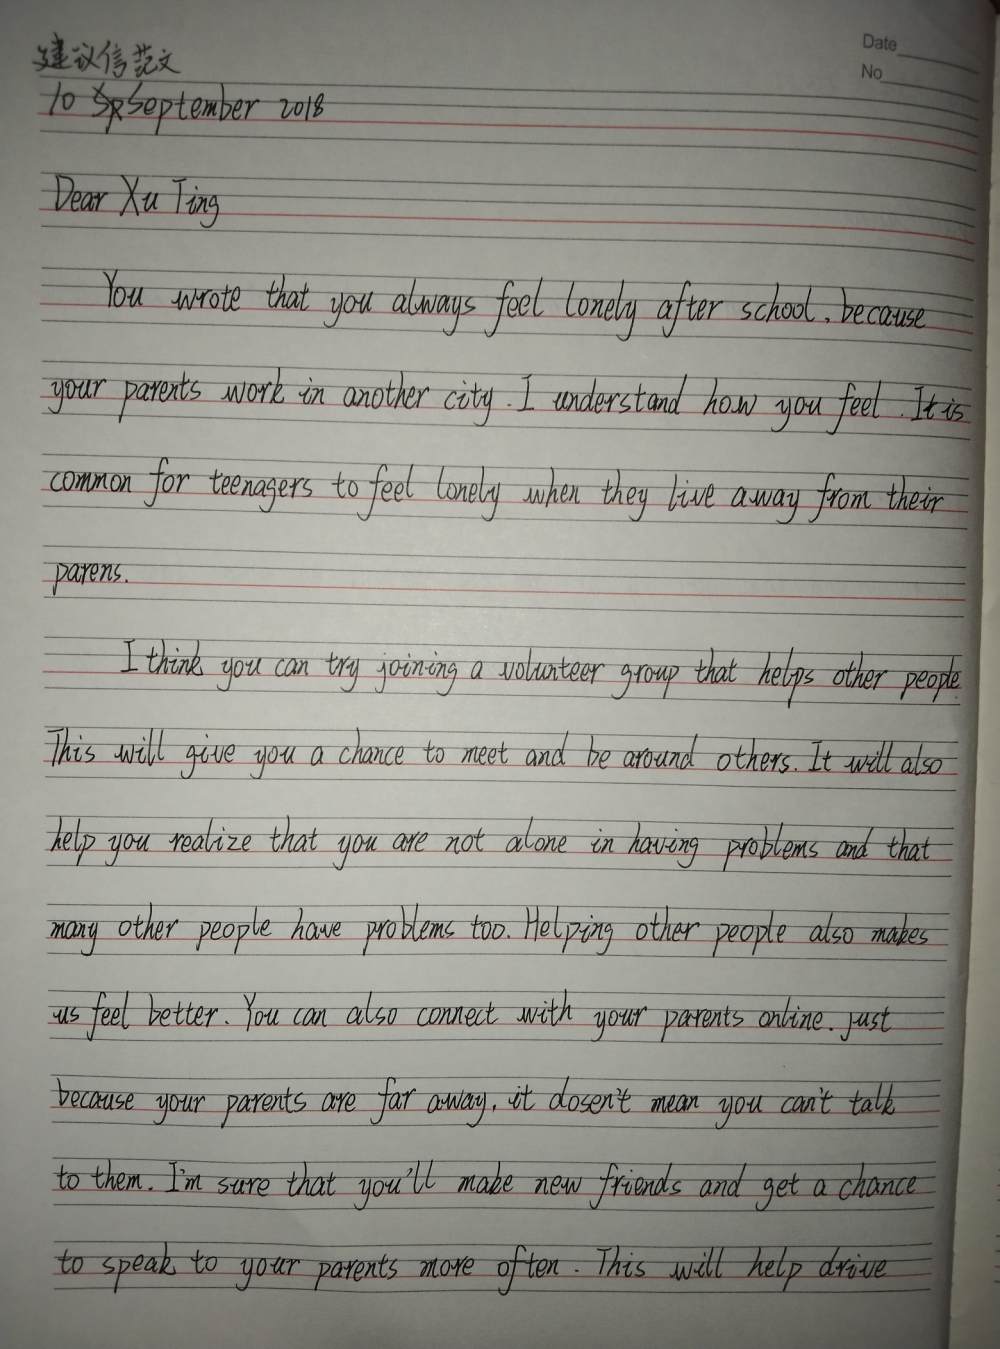 建议信范文
Date
No
10 September 2018
Dear Xu Ting
You wrote that you always feel lonely after school, because
your parents work in another city. I understand how you feel. It is
common for teenagers to feel lonely when they live away from their
parens.
I think you can try joining a volunteer group that helps other people.
This will give you a chance to meet and be around others. It will also
help you realize that you are not alone in having problems and that
many other people have problems too. Helping other people also makes
us feel better. You can also connect with your parents online. just
because your parents are far away, it dosen't mean you can't talk
to them. I'm sure that you'll make new friends and get a chance
to speak to your parents more often. This will help drive